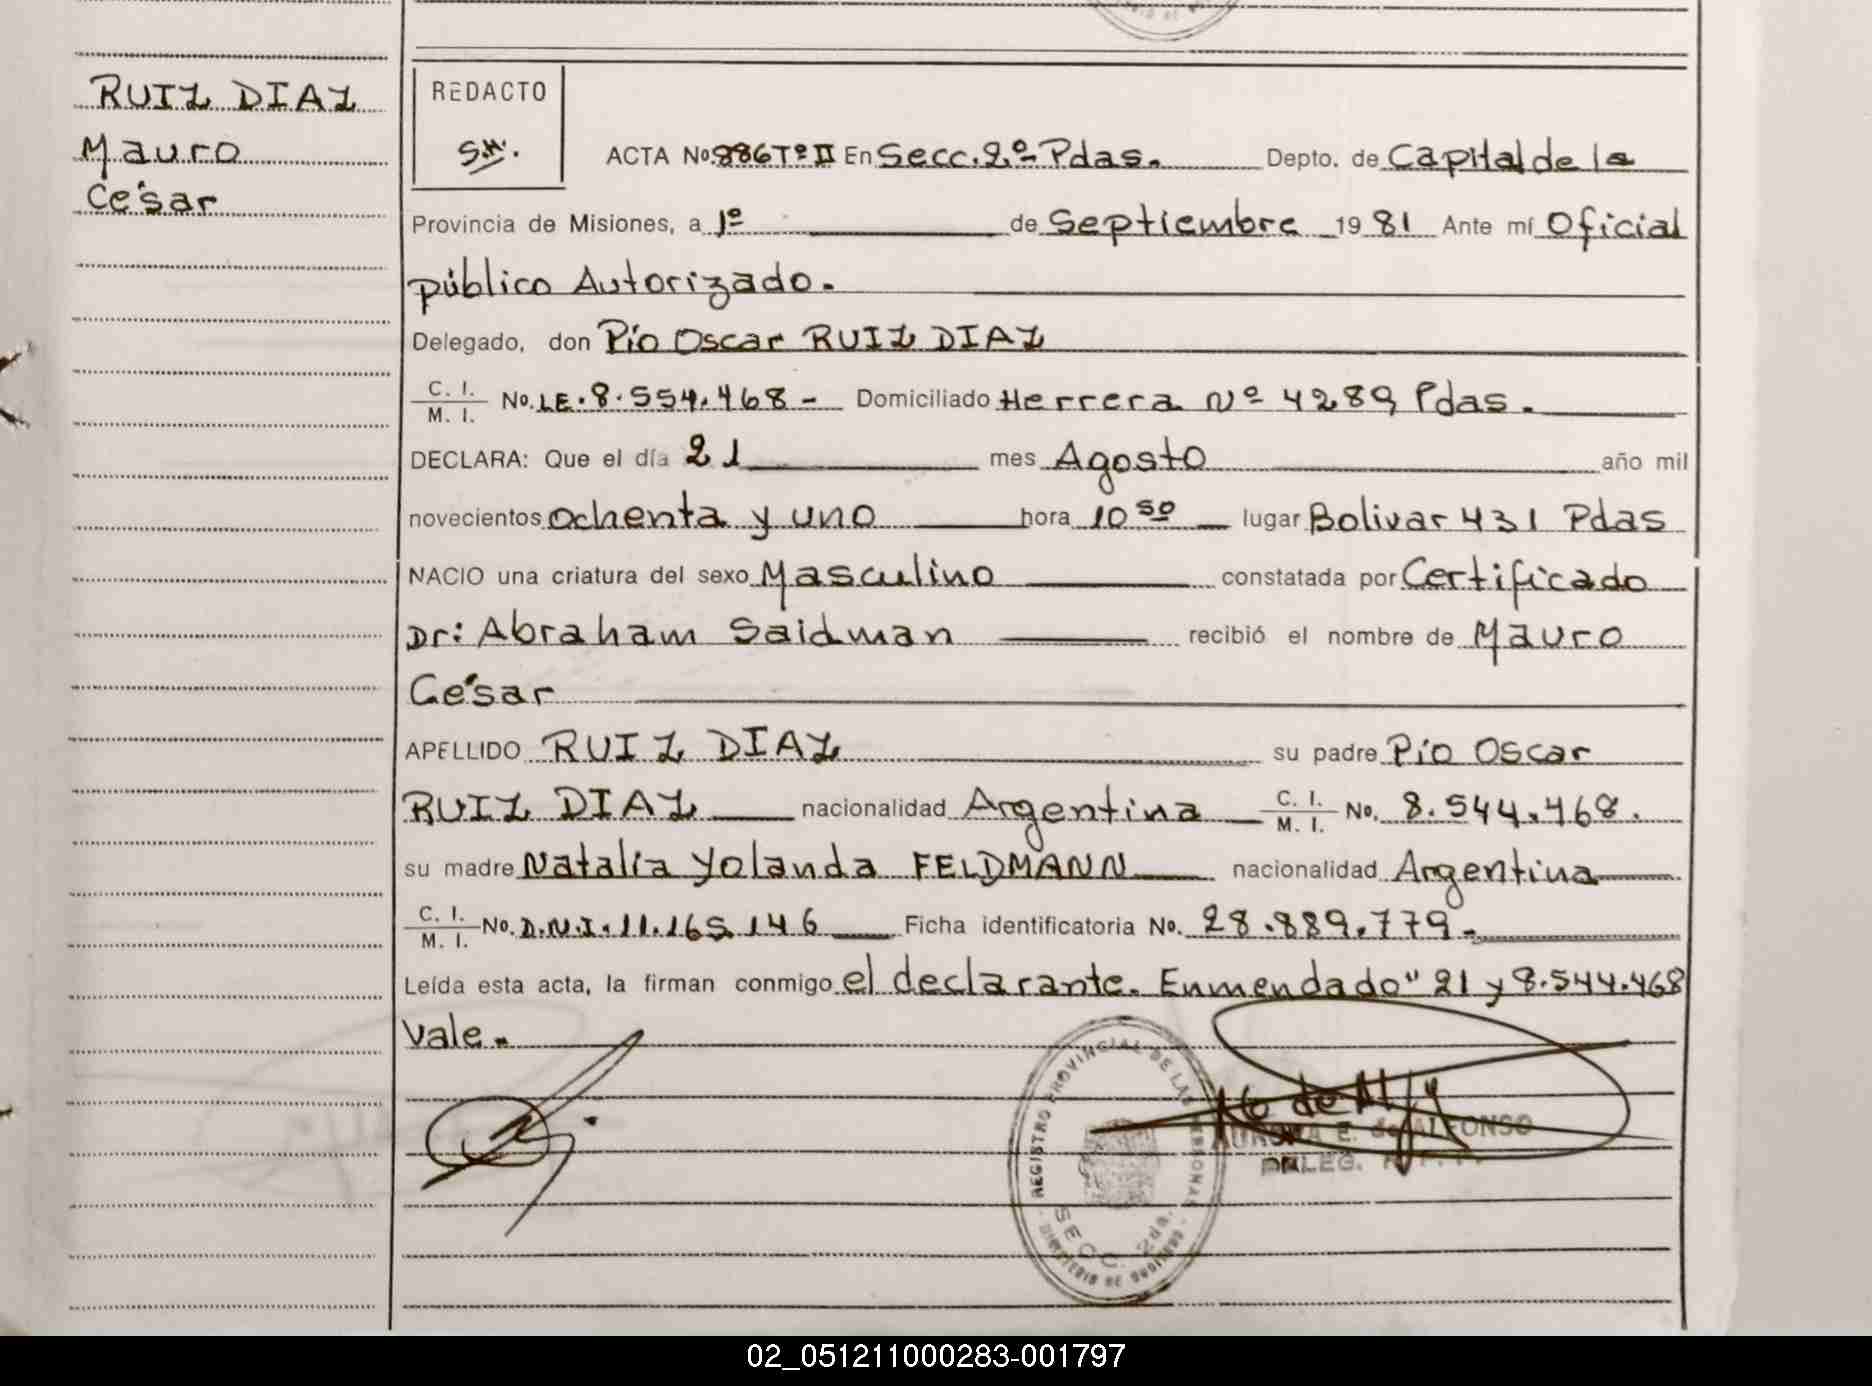 RUIZ DIAZ
Mauro
César
REDACTO
S.M.
ACTA No. 886 Tº II En Secc. 2.º Pdas. Depto. de Capital de la
Provincia de Misiones, a 1º de Septiembre 19 81 Ante mí Oficial
público Autorizado.
Delegado, don Pío Oscar RUIZ DIAZ
C. I. / M. I. No. LE. 8.554.468 - Domiciliado Herrera Nº 4289 Pdas.
DECLARA: Que el día 21 mes Agosto año mil
novecientos ochenta y uno hora 10 50 lugar Bolivar 431 Pdas
NACIO una criatura del sexo Masculino constatada por Certificado
Dr: Abraham Saidman recibió el nombre de Mauro
César
APELLIDO RUIZ DIAZ su padre Pío Oscar
RUIZ DIAZ nacionalidad Argentina C. I. / M. I. No. 8.544.468.
su madre Natalia Yolanda FELDMANN nacionalidad Argentina
C. I. / M. I. No. D.N.I. 11.165.146 Ficha identificatoria No. 28.889.779-
Leída esta acta, la firman conmigo el declarante. Enmendado "21 y 8.544.468
Vale.
REGISTRO PROVINCIAL DE LAS PERSONAS
SECC. 2da.
MINISTERIO DE GOBIERNO
AURORA E. de ALFONSO
DELEG.
02_051211000283-001797